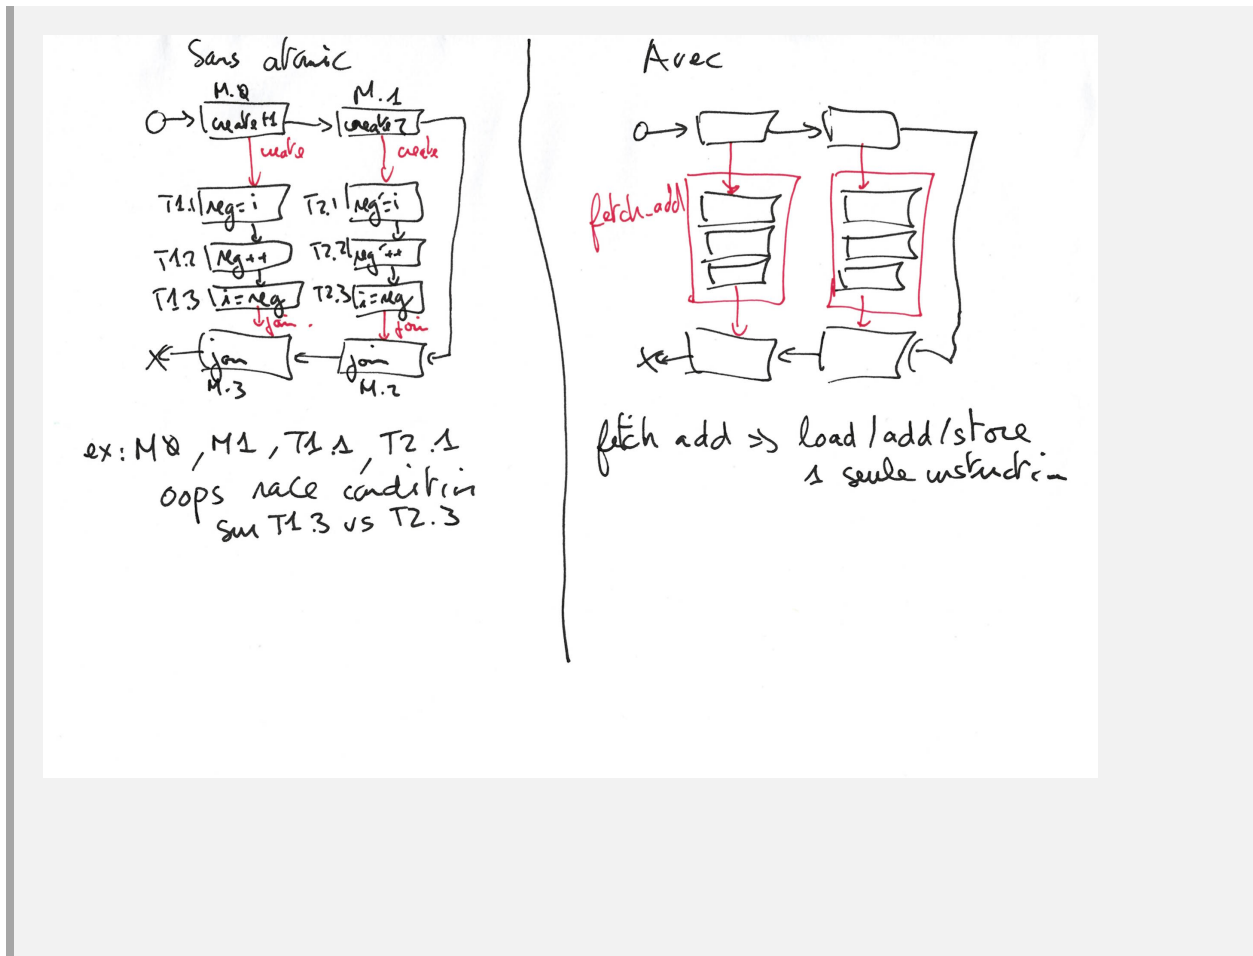 Sans atomic
M.0 M.1
create t1 create 2
create create
T1.1 reg=i T2.1 reg'=i
T1.2 reg++ T2.2 reg'++
T1.3 i=reg T2.3 i=reg
join. join
join join
M.3 M.2
ex: M0, M1, T1.1, T2.1
oops race condition
sur T1.3 vs T2.3
Avec
fetch_add
fetch add => load/add/store
1 seule instruction